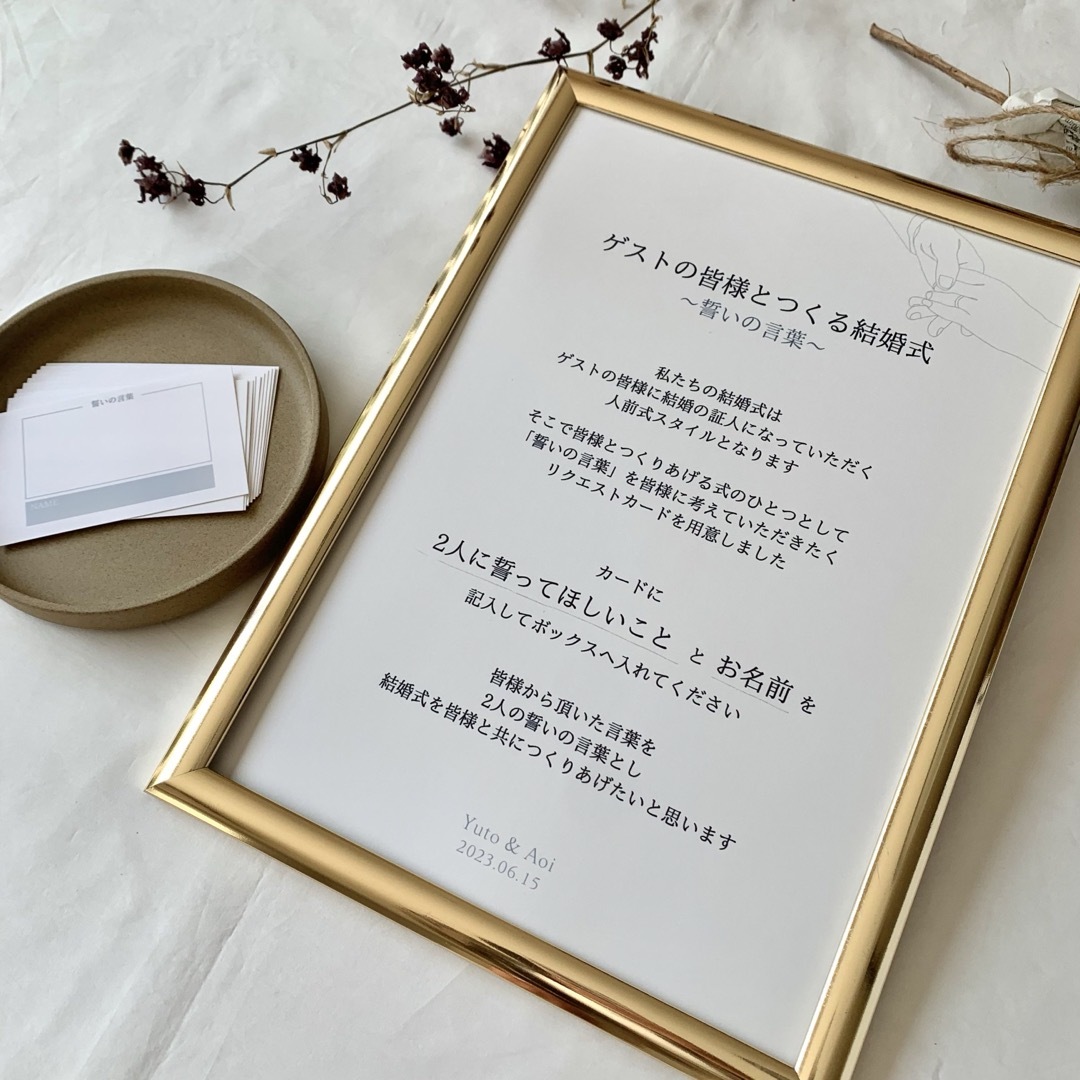 ゲストの皆様とつくる結婚式
～誓いの言葉～
私たちの結婚式は
ゲストの皆様に結婚の証人になっていただく
人前式スタイルとなります
そこで皆様とつくりあげる式のひとつとして
「誓いの言葉」を皆様に考えていただきたく
リクエストカードを用意しました
カードに
2人に誓ってほしいこと と お名前 を
記入してボックスへ入れてください
皆様から頂いた言葉を
2人の誓いの言葉とし
結婚式を皆様と共につくりあげたいと思います
Yuto & Aoi
2023.06.15
誓いの言葉
NAME